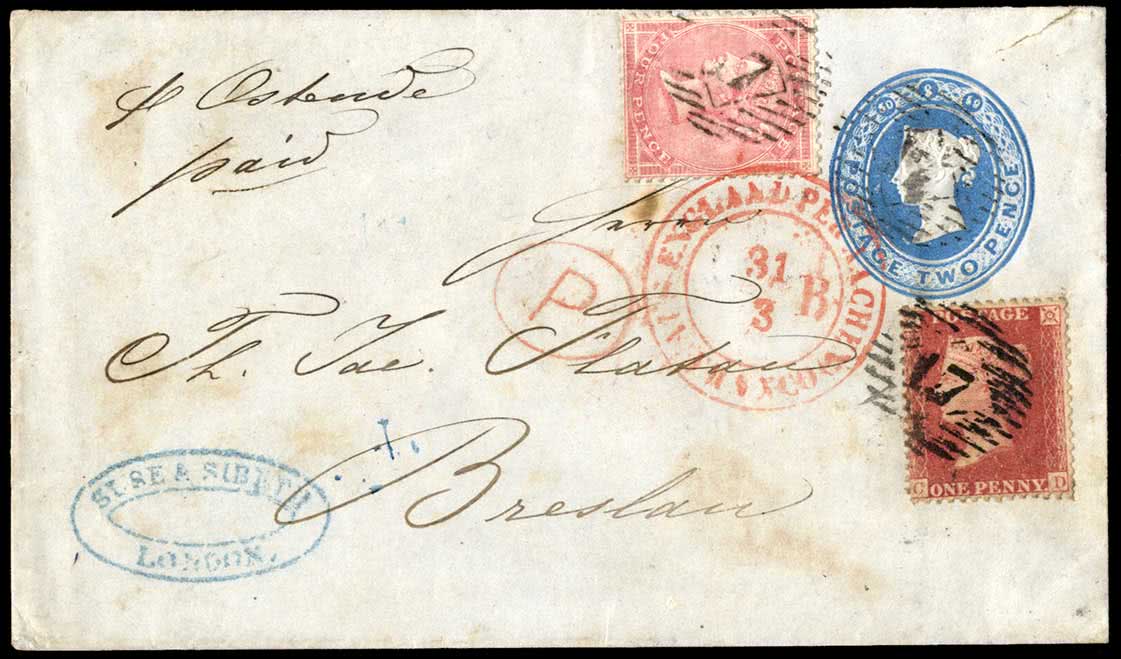 pr Ostende
paid
FOUR PENCE
POSTAGE TWO PENCE
ENGLAND PER AACHEN
FRANCO
31
3
B
P
Herrn
Th. Jac. Flatau
Breslau
POSTAGE
17
C ONE PENNY D
SUSE & SIBETH
LONDON.